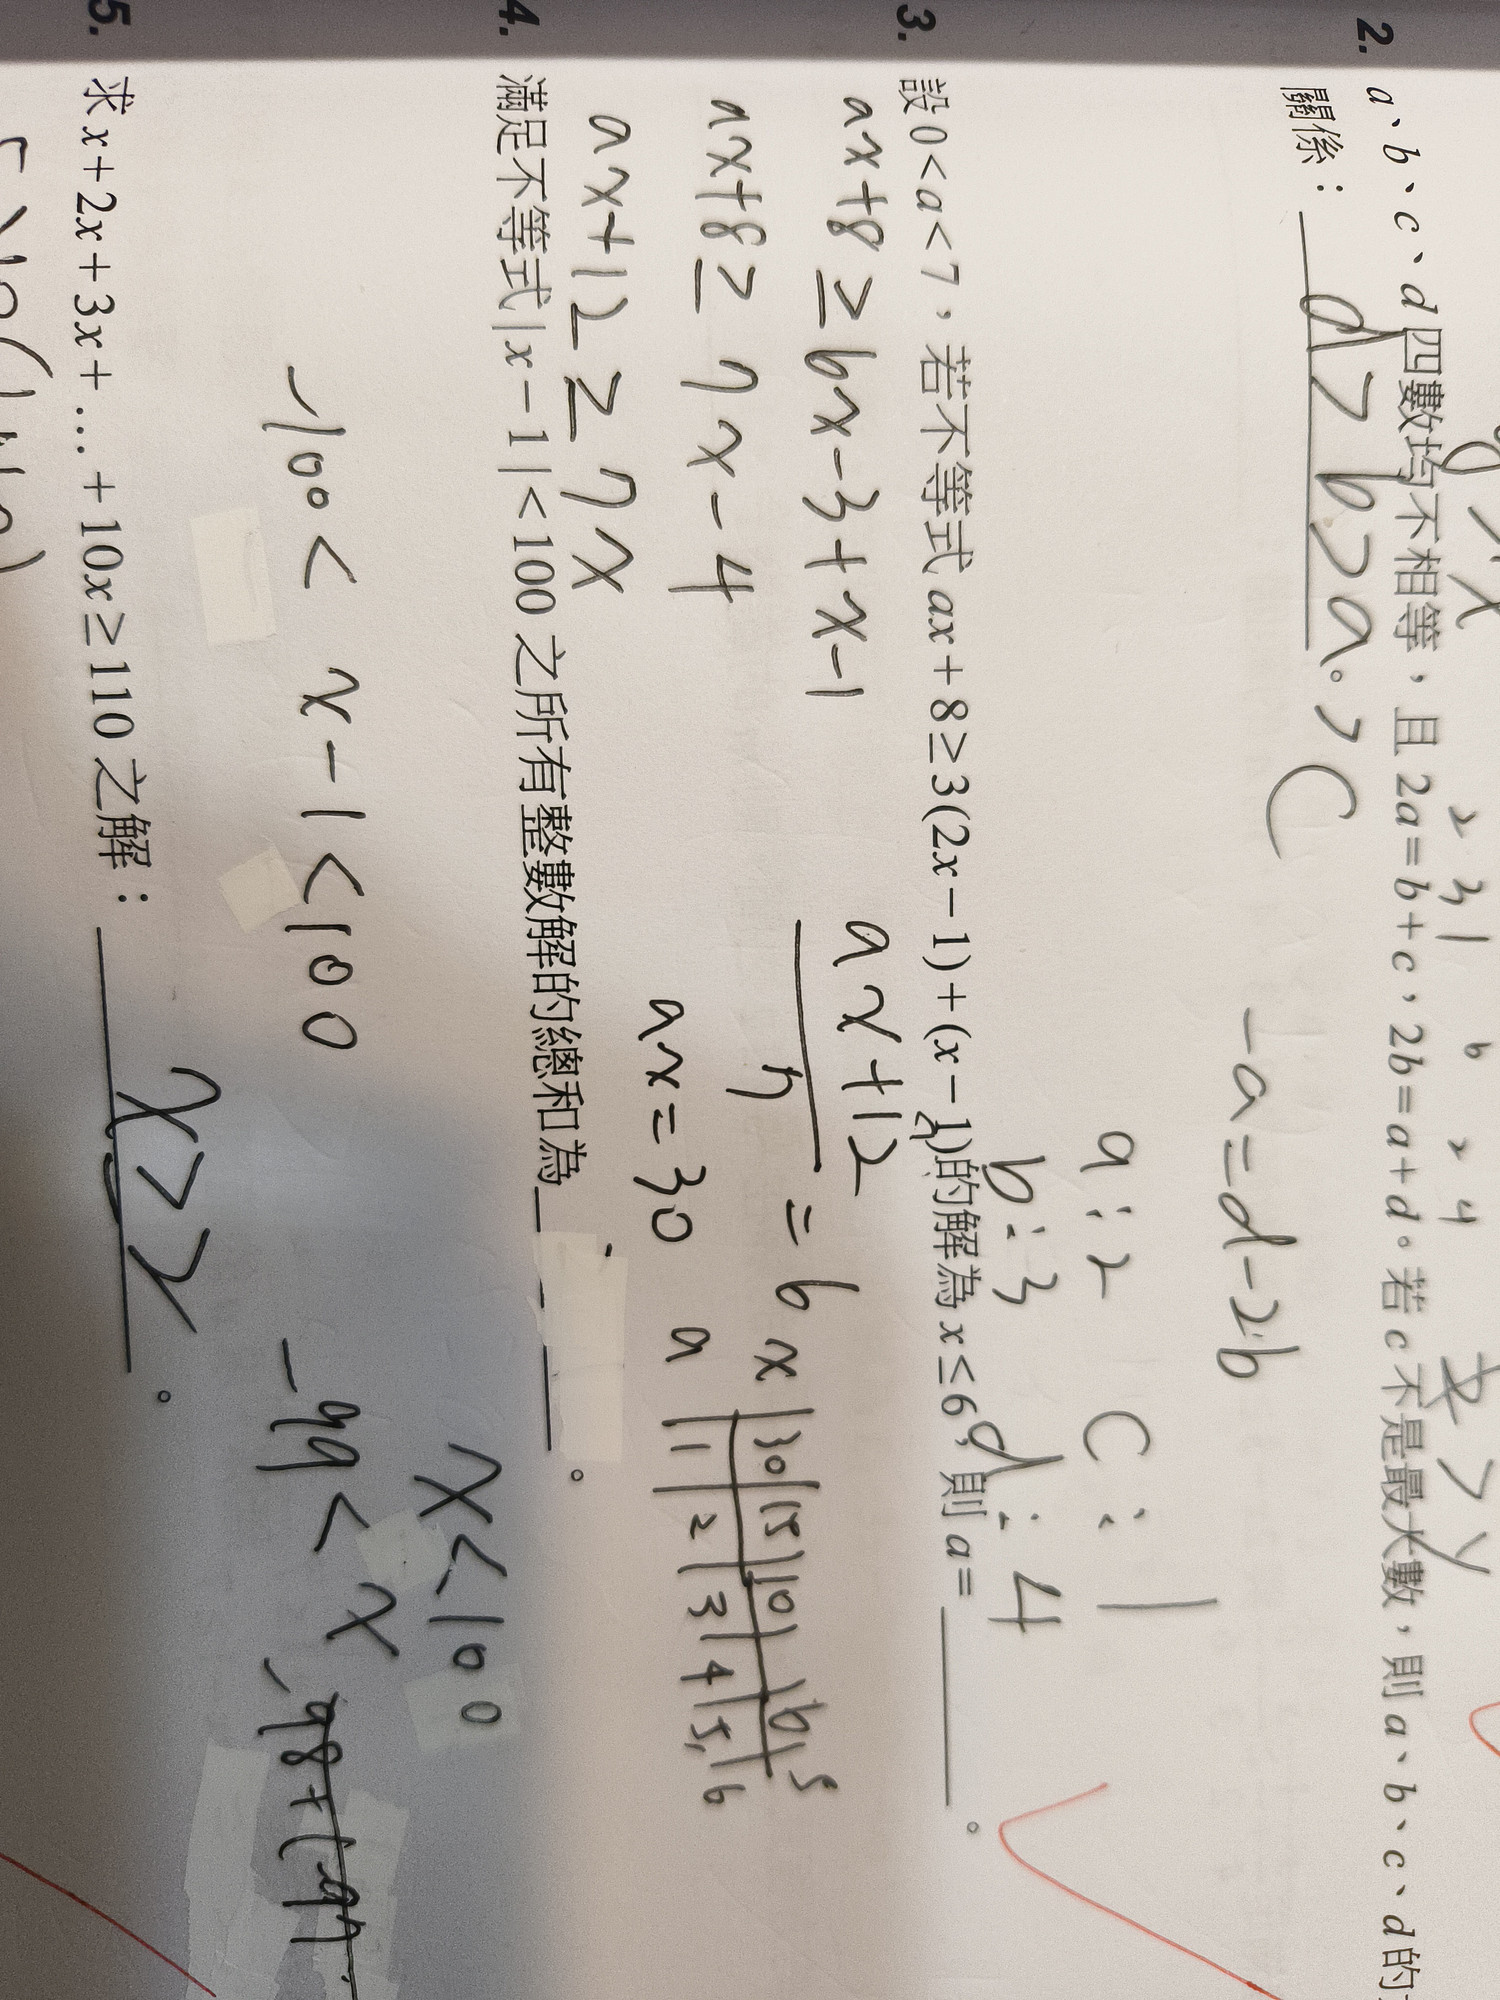 2. a、b、c、d四數均不相等，且2a=b+c，2b=a+d。若c不是最大數，則a、b、c、d的
關係：d>b>a。>C
-a=d-2b
a:2 C:1
b:3 d:4
3. 設0<a<7，若不等式ax+8≥3(2x-1)+(x-1)的解為x≤6，則a=＿＿。
ax+8≥6x-3+x-1
ax+8≥7x-4
ax+12≥7x
ax+12
7
=6
ax=30
x 30 15 10 6 5
a 1 2 3 4 5 6
4. 滿足不等式|x-1|<100之所有整數解的總和為＿＿。
-100< x-1<100
x<100
-99<x
-98+(-97)
5. 求x+2x+3x+…+10x≥110之解：x>2。